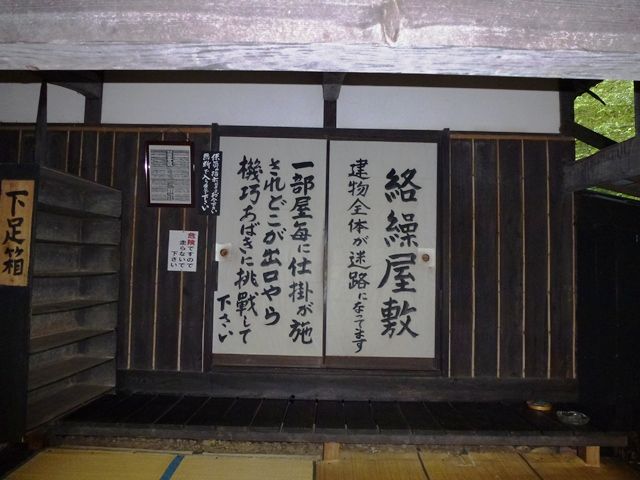 絡繰屋敷
建物全体が迷路になってます
一部屋毎に仕掛が施
されどこが出口やら
機巧ちばきに挑戦して
下さい
危険ですので
走らないで
下さい
下足箱